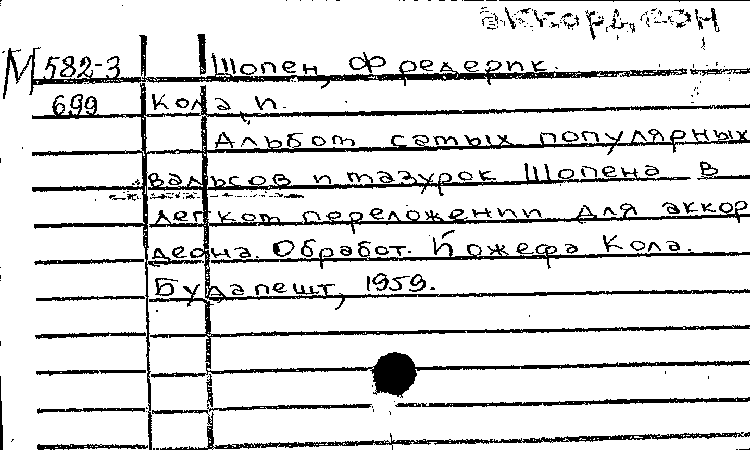 аккордеон
М 582-3 Шопен, Фредерик.
699 Кола, И.
Альбом самых популярных
вальсов и мазурок Шопена в
легком переложении для аккор
деона. Обработ. Йожефа Кола.
Будапешт, 1959.